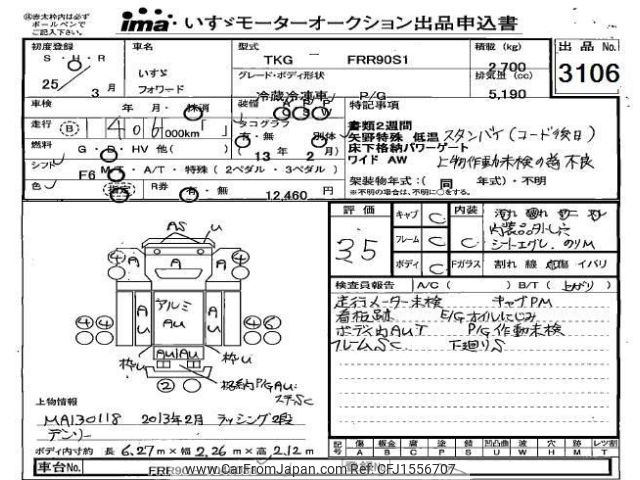 ㊟赤太枠内は必ず
ボールペンで
ご記入下さい。
ima いすゞモーターオークション出品申込書
初度登録 車名 型式 積載 (kg) 出品 No.
S・H・R いすゞ TKG － FRR90S1 2,700
25／3月 フォワード グレード・ボディ形状 排気量 (cc) 3106
冷蔵冷凍車 P/G 5,190
車検 年 月・抹消 装備 A P P S W 特記事項
走行 (B) 1406000km 「 」 タコグラフ 有・無 別体 書類2週間
矢野特殊 低温 スタンバイ(コード後日)
燃料 G・D・HV 他( ) (13年 2月) 床下格納パワーゲート
シフト F6 M/T・A/T・特殊 (2ペダル・3ペダル) ワイド AW 上物作動未検の為不良
色 R券 有・無 12,460円 架装物年式:( 同 年式)・不明
※不明の場合は、不明に○をする。
評価 キャブ C 内装 C
3.5 フレーム C 内装品外し穴
ボディ C Fガラス 割れ 線 点傷 イバリ
シートエグレ、のりM
検査員報告 A/C ( ) B/T (上がり)
走行メーター未検 キャブPM
看板跡 E/Gオイルにじみ
ボディ内AUT P/G作動未検
フレームSC 下廻りS
AS U
4 A A A 4
A U アルミ AU A U
4 4 4 6
枠U AU AU 枠U
2 格納P/G AU
ステSC
上物情報
MA130118 2013年2月 ラッシング2段
デンソー
ボディ内寸約 長 6.27m×幅 2.26m×高 2.12m
記号 傷 A 鈑金 B 腐 C 塗 P 錆 S 凹凸曲 U 波 W 穴 H 跡 M レツ割 T
車台No. FRR90
www.CarFromJapan.com Ref: CFJ1556707